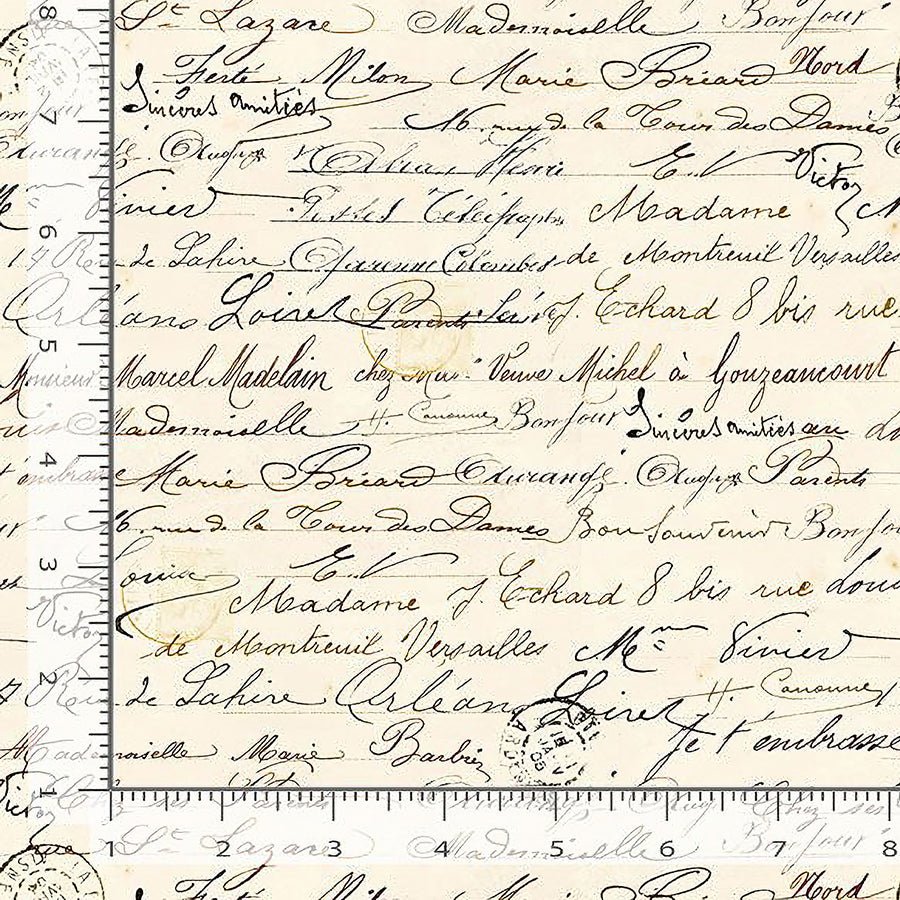 8 St Lazare Mademoiselle Bonjour
Ferté Milon Marie Briard Nord
Sincères Amitiés
7 16 rue de la Tour des Dames
Henri E.V. Victor
Vivier Postes Télégraphes Madame
6
14 Rue de Lahire Garenne Colombes de Montreuil Versailles
Orléans Loiret Parents J. Echard 8 bis rue
5
Monsieur Marcel Madelain chez Veuve Michel à Gouzeaucourt
Mademoiselle H. Canonne Bonjour Sincères Amitiés au
4
t'embrasse Marie Briard Parents
16 rue de la Tour des Dames Bon Souvenir Bonjou
3
Louise E.V
Madame J. Echard 8 bis rue Loui
Victor
de Montreuil Versailles Mme Vivier
2
Rue de Lahire Orléans Loiret H. Canonne
Je t'embrasse
Mademoiselle Marie Barbier
1
Victor Chez ses Parents Chez ses
1 2 3 4 5 6 7 8
St Lazare Mademoiselle Bonjour
Ferté Milon Marie Briard Nord